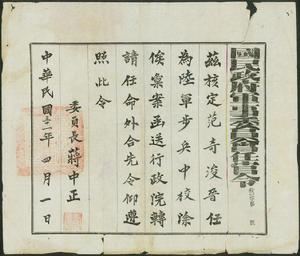 國民政府軍事委員會任官令
茲核定范奇浚晉任
為陸軍步兵中校除
俟彙案函送行政院轉
請任命外合先令仰遵
照此令
委員長蔣中正
中華民國三十一年四月一日